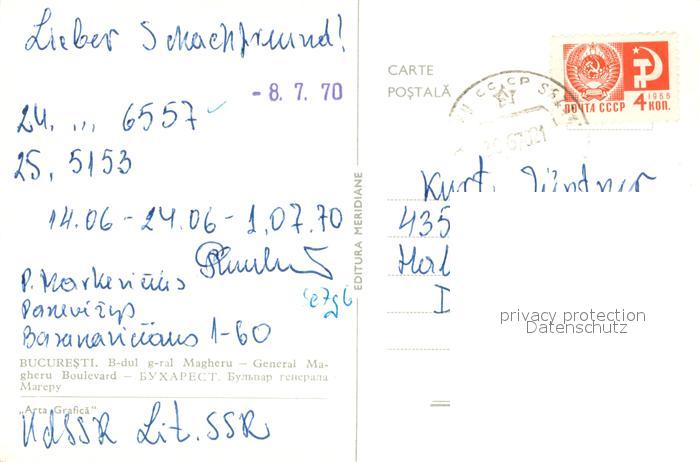 Lieber Schachfreund!
- 8. 7. 70
24. ... 6557
25. 5153
14.06 - 24.06 - 1.07.70
P. Markevičius
Panevėžys
Basanavičiaus 1-60
BUCUREȘTI. B-dul g-ral Magheru — General Ma-
gheru Boulevard — БУХАРЕСТ. Бульвар генерала
Магеру
„Arta Grafică"
UdSSR Lit. SSR
EDITURA MERIDIANE
CARTE
POȘTALĂ
1966
ПОЧТА СССР 4 КОП.
Kurt
435
privacy protection
Datenschutz